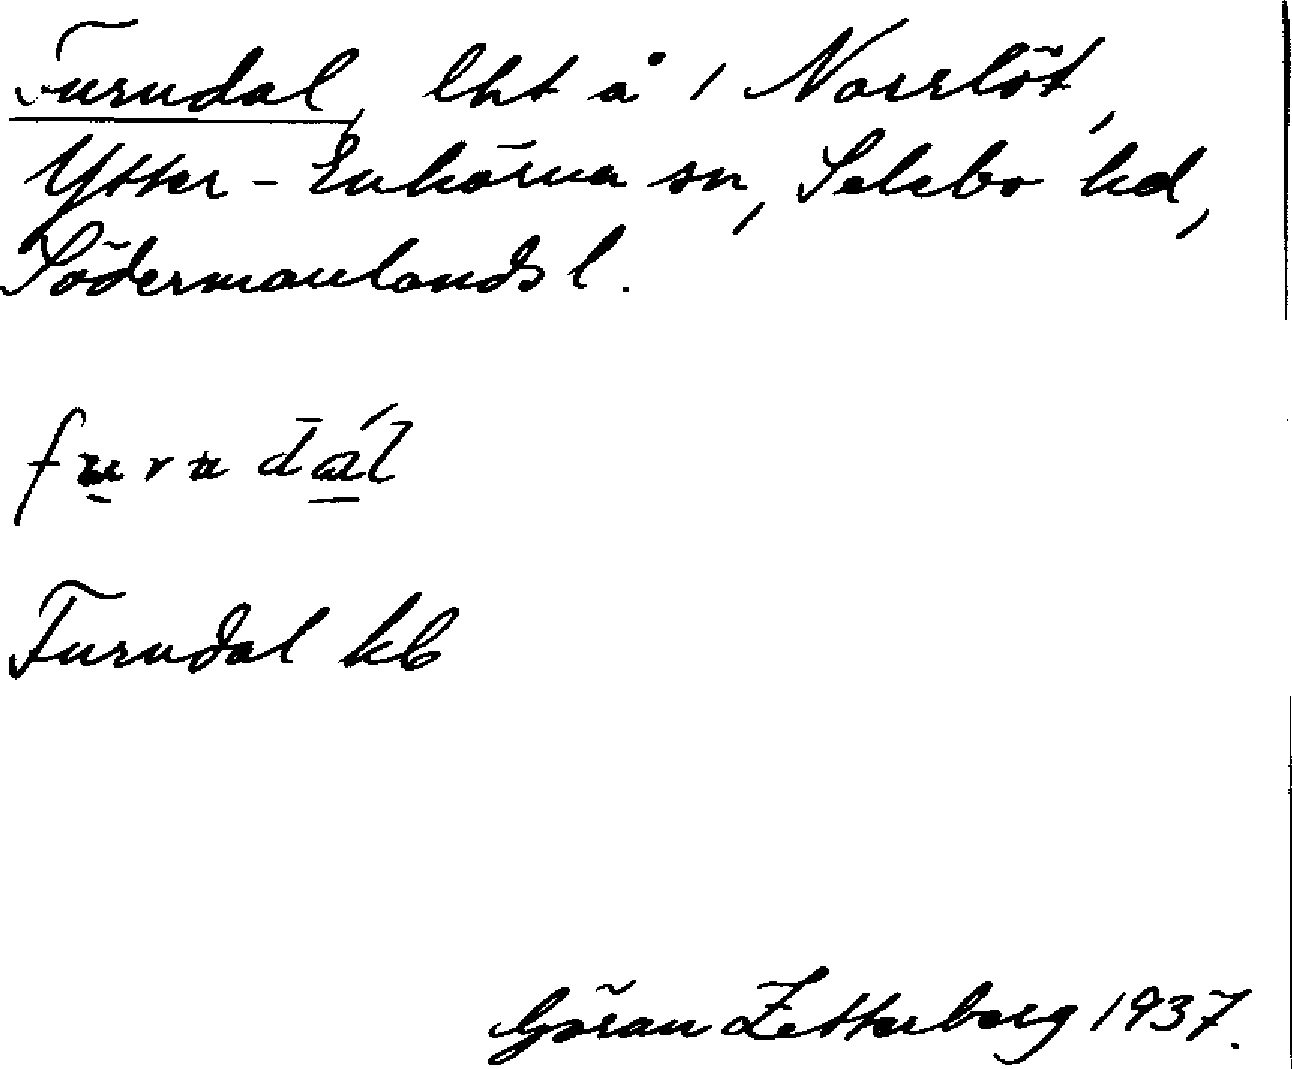 Furudal, lht å 1 Norrlöt,
Ytter-Enhörna sn, Selebo hd,
Södermanlands l.
furu dál
Furudal kb
Göran Zetterberg 1937.